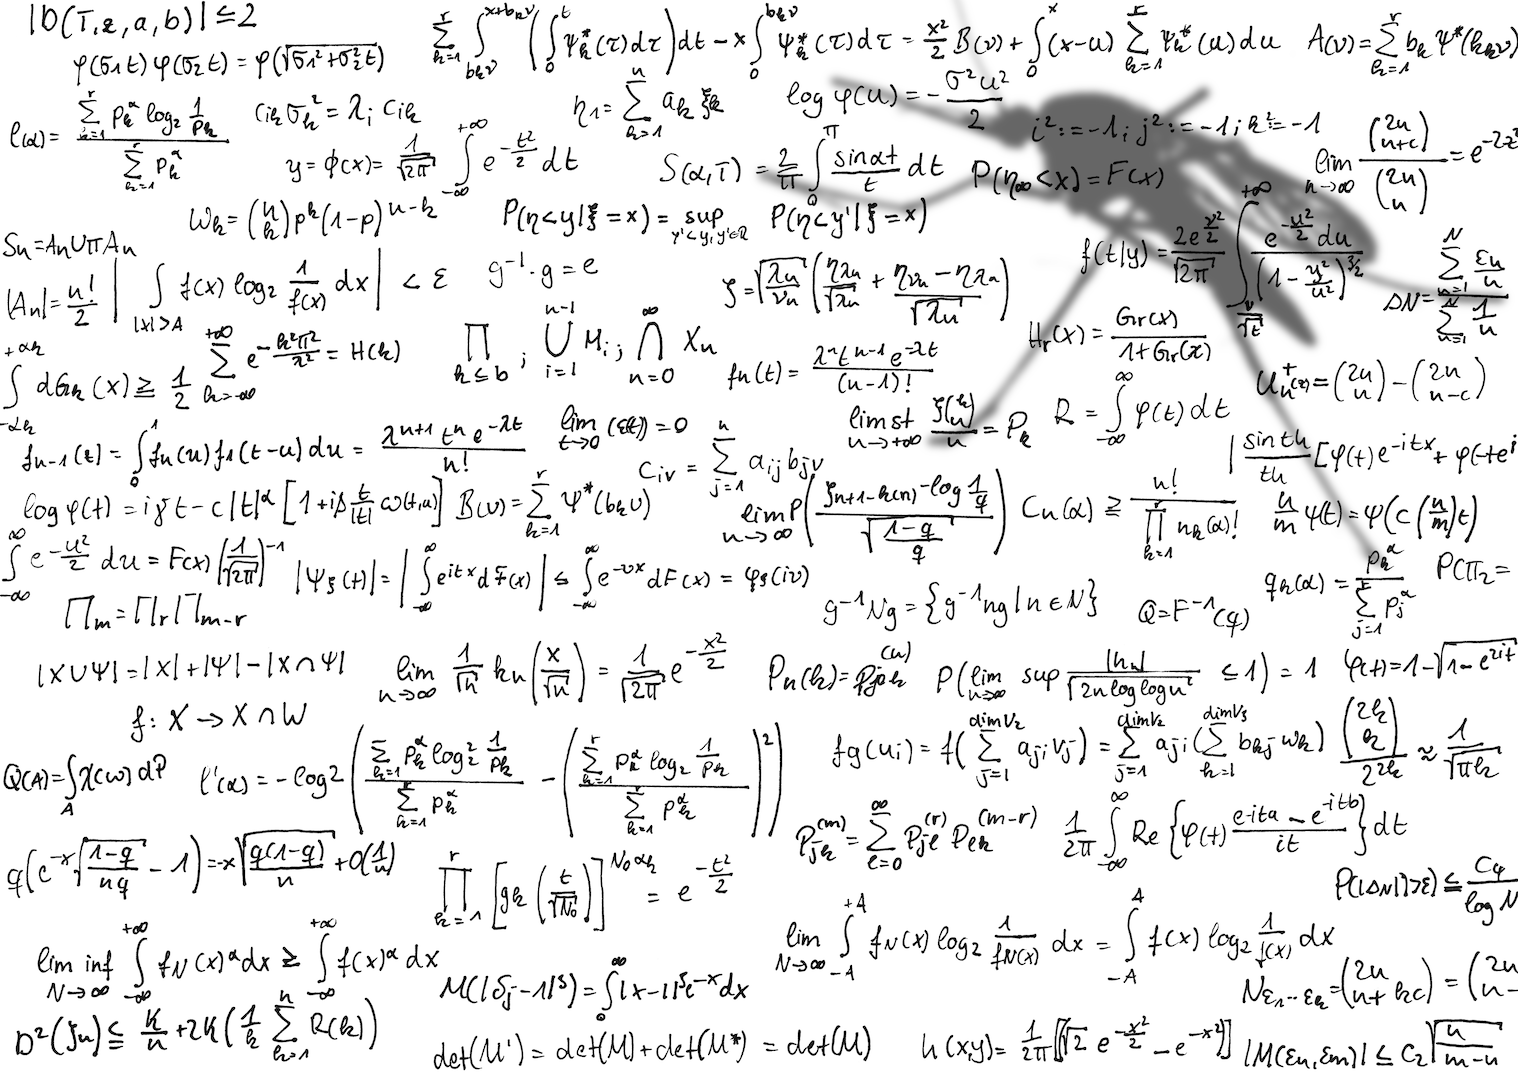 |D(T,z,a,b)| ≤ 2
φ(σ1t) φ(σ2t) = φ(√σ1²+σ2² t)
∑_{k=1}^{r} ∫_{bkν}^{x+bkν} (∫_0^t ψk*(τ)dτ) dt − x ∫_0^{bkν} ψk*(τ)dτ = x²/2 B(ν) + ∫_0^x (x−u) ∑_{k=1}^{r} ψk*(u)du
A(ν) = ∑_{k=1}^{r} bk ψ*(bkν)
ℓ(α) = ∑_{k=1}^{r} pk^α log2 1/pk / ∑_{k=1}^{r} pk^α
cik σk² = λi cik
η1 = ∑_{k=1}^{n} ak ξk
log φ(u) = −σ²u²/2
i² := −1; j² := −1; k² := −1
lim_{n→∞} (2n n+c)/(2n n) = e^{−2z²}
y = ϕ(x) = 1/√2π ∫_{−∞}^{+∞} e^{−t²/2} dt
S(α,T) = 2/π ∫_0^π sinαt/t dt
P(η∞<x) = F(x)
Wk = (n k) p^k (1−p)^{n−k}
P(η<y|ξ=x) = sup_{y'<y, y'∈R} P(η<y'|ξ=x)
f(t|y) = 2e^{ν²/2}/√2π ∫_{ν/√t}^{+∞} e^{−u²/2} du/(1−y²/u²)^{3/2}
Sn = An∪πAn
|An| = n!/2
|∫_{|x|>A} f(x) log2 1/f(x) dx| < ε
g⁻¹·g = e
ζ = √λn/νn (ηλn/√λn + ηνn−ηλn/√λn)
ΔN = ∑_{n=1}^{N} εn/n / ∑_{n=1}^{N} 1/n
∫_{−αk}^{+αk} dGk(x) ≥ 1/2
∑_{k=−∞}^{+∞} e^{−k²π²/λ²} = H(k)
∏_{k≤b} ; ⋃_{i=1}^{n−1} Mi ; ⋂_{n=0}^{∞} Xn
fn(t) = λⁿt^{n−1}e^{−λt}/(n−1)!
Hr(x) = Gr(x)/1+Gr(x)
Un⁺(z) = (2n n) − (2n n−c)
fn−1(t) = ∫_0^1 fn(u)f1(t−u)du = λ^{n+1}tⁿe^{−λt}/n!
lim_{t→0} (ε(t)) = 0
civ = ∑_{j=1}^{n} aij bjv
lim st_{n→+∞} ξn^(k)/n = Pk
R = ∫_{−∞}^{∞} φ(t)dt
|sinth/th [φ(t)e^{−itx} + φ(−t)e^i
log φ(t) = iγt − c|t|^α [1+iβ t/|t| ω(t,α)]
B(ν) = ∑_{k=1}^{r} ψ*(bkν)
lim_{n→∞} P(ξn+1−k(n)−log 1/q / √1−q/q)
Cn(α) ≥ n!/∏_{k=1}^{r} nk(α)!
n/m ψ(t) = ψ(c(n/m)t)
∫_{−∞}^{∞} e^{−u²/2} du = F(x)(1/√2π)⁻¹
|ψξ(t)| = |∫_{−∞}^{∞} e^{itx}dF(x)| ≤ ∫_{−∞}^{∞} e^{−νx}dF(x) = φξ(iν)
g⁻¹Ng = {g⁻¹ng|n∈N}
Q = F⁻¹(q)
qk(α) = pk^α/∑_{j=1}^{r} pj^α
P(π2 =
∏m = ∏r ∏m−r
|X∪Ψ| = |X|+|Ψ|−|X∩Ψ|
lim_{n→∞} 1/√n kn(x/√n) = 1/√2π e^{−x²/2}
Pn(k) = Pj0k^(n)
P(lim_{n→∞} sup |hn|/√2nloglogn² ≤ 1) = 1
φ(t) = 1−√1−e^{2it}
f: X → X∩W
Q(A) = ∫_A X(ω)dP
ℓ'(α) = −log2 (∑_{k=1}^{r} pk^α log2² 1/pk / ∑_{k=1}^{r} pk^α − (∑_{k=1}^{r} pk^α log2 1/pk / ∑_{k=1}^{r} pk^α)²)
fg(ui) = f(∑_{j=1}^{dimV2} aji vj) = ∑_{j=1}^{dimV2} aji (∑_{k=1}^{dimV3} bkj wk)
(2k k)/2^{2k} ≈ 1/√πk
Pjk^(m) = ∑_{ℓ=0}^{∞} Pjℓ^(r) Pℓk^(m−r)
1/2π ∫_{−∞}^{∞} Re{φ(t) e^{−ita}−e^{−itb}/it} dt
q(e^{−x√1−q/nq} − 1) = −x√q(1−q)/n + O(1/n)
∏_{k=1}^{r} [gk(t/√N0)]^{N0αk} = e^{−t²/2}
P(|ΔN|>ε) ≤ C4/log N
lim inf_{N→∞} ∫_{−∞}^{+∞} fN(x)^α dx ≥ ∫_{−∞}^{+∞} f(x)^α dx
lim_{N→∞} ∫_{−A}^{+A} fN(x) log2 1/fN(x) dx = ∫_{−A}^{A} f(x) log2 1/f(x) dx
M(|δj−1|³) = ∫_0^∞ |x−1|³e^{−x}dx
Nε1…εk = (2n n+kc) = (2n n−
D²(ζn) ≦ K/n + 2K(1/k ∑_{k=1}^{n} R(k))
det(M') = det(M)+det(M*) = det(M)
h(x,y) = 1/2π [√2 e^{−x²/2} − e^{−x²}]
|M(εn,εm)| ≤ C2√n/m−n